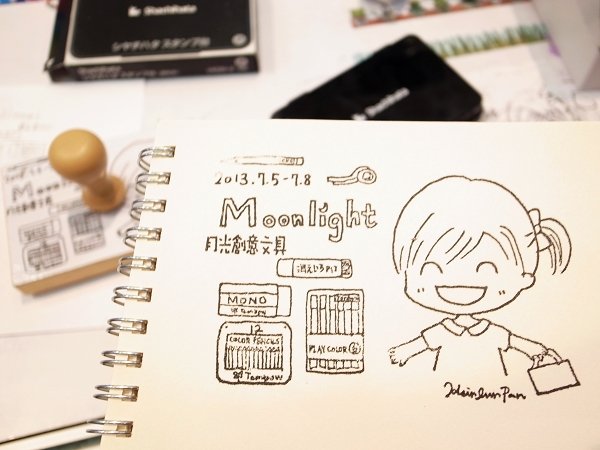 Shachihata
シヤチハタ スタンプ台
Shachihata
2013.7.5-7.8
Moonlight
月光創意文具
消えいろPiT
MONO
Tombow
12
COLOR PENCILS
Tombow
PLAY COLOR 2
Moonlight